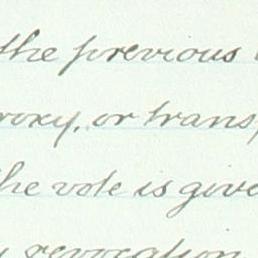 the previous
roxy, or trans
the vote is give
revocation